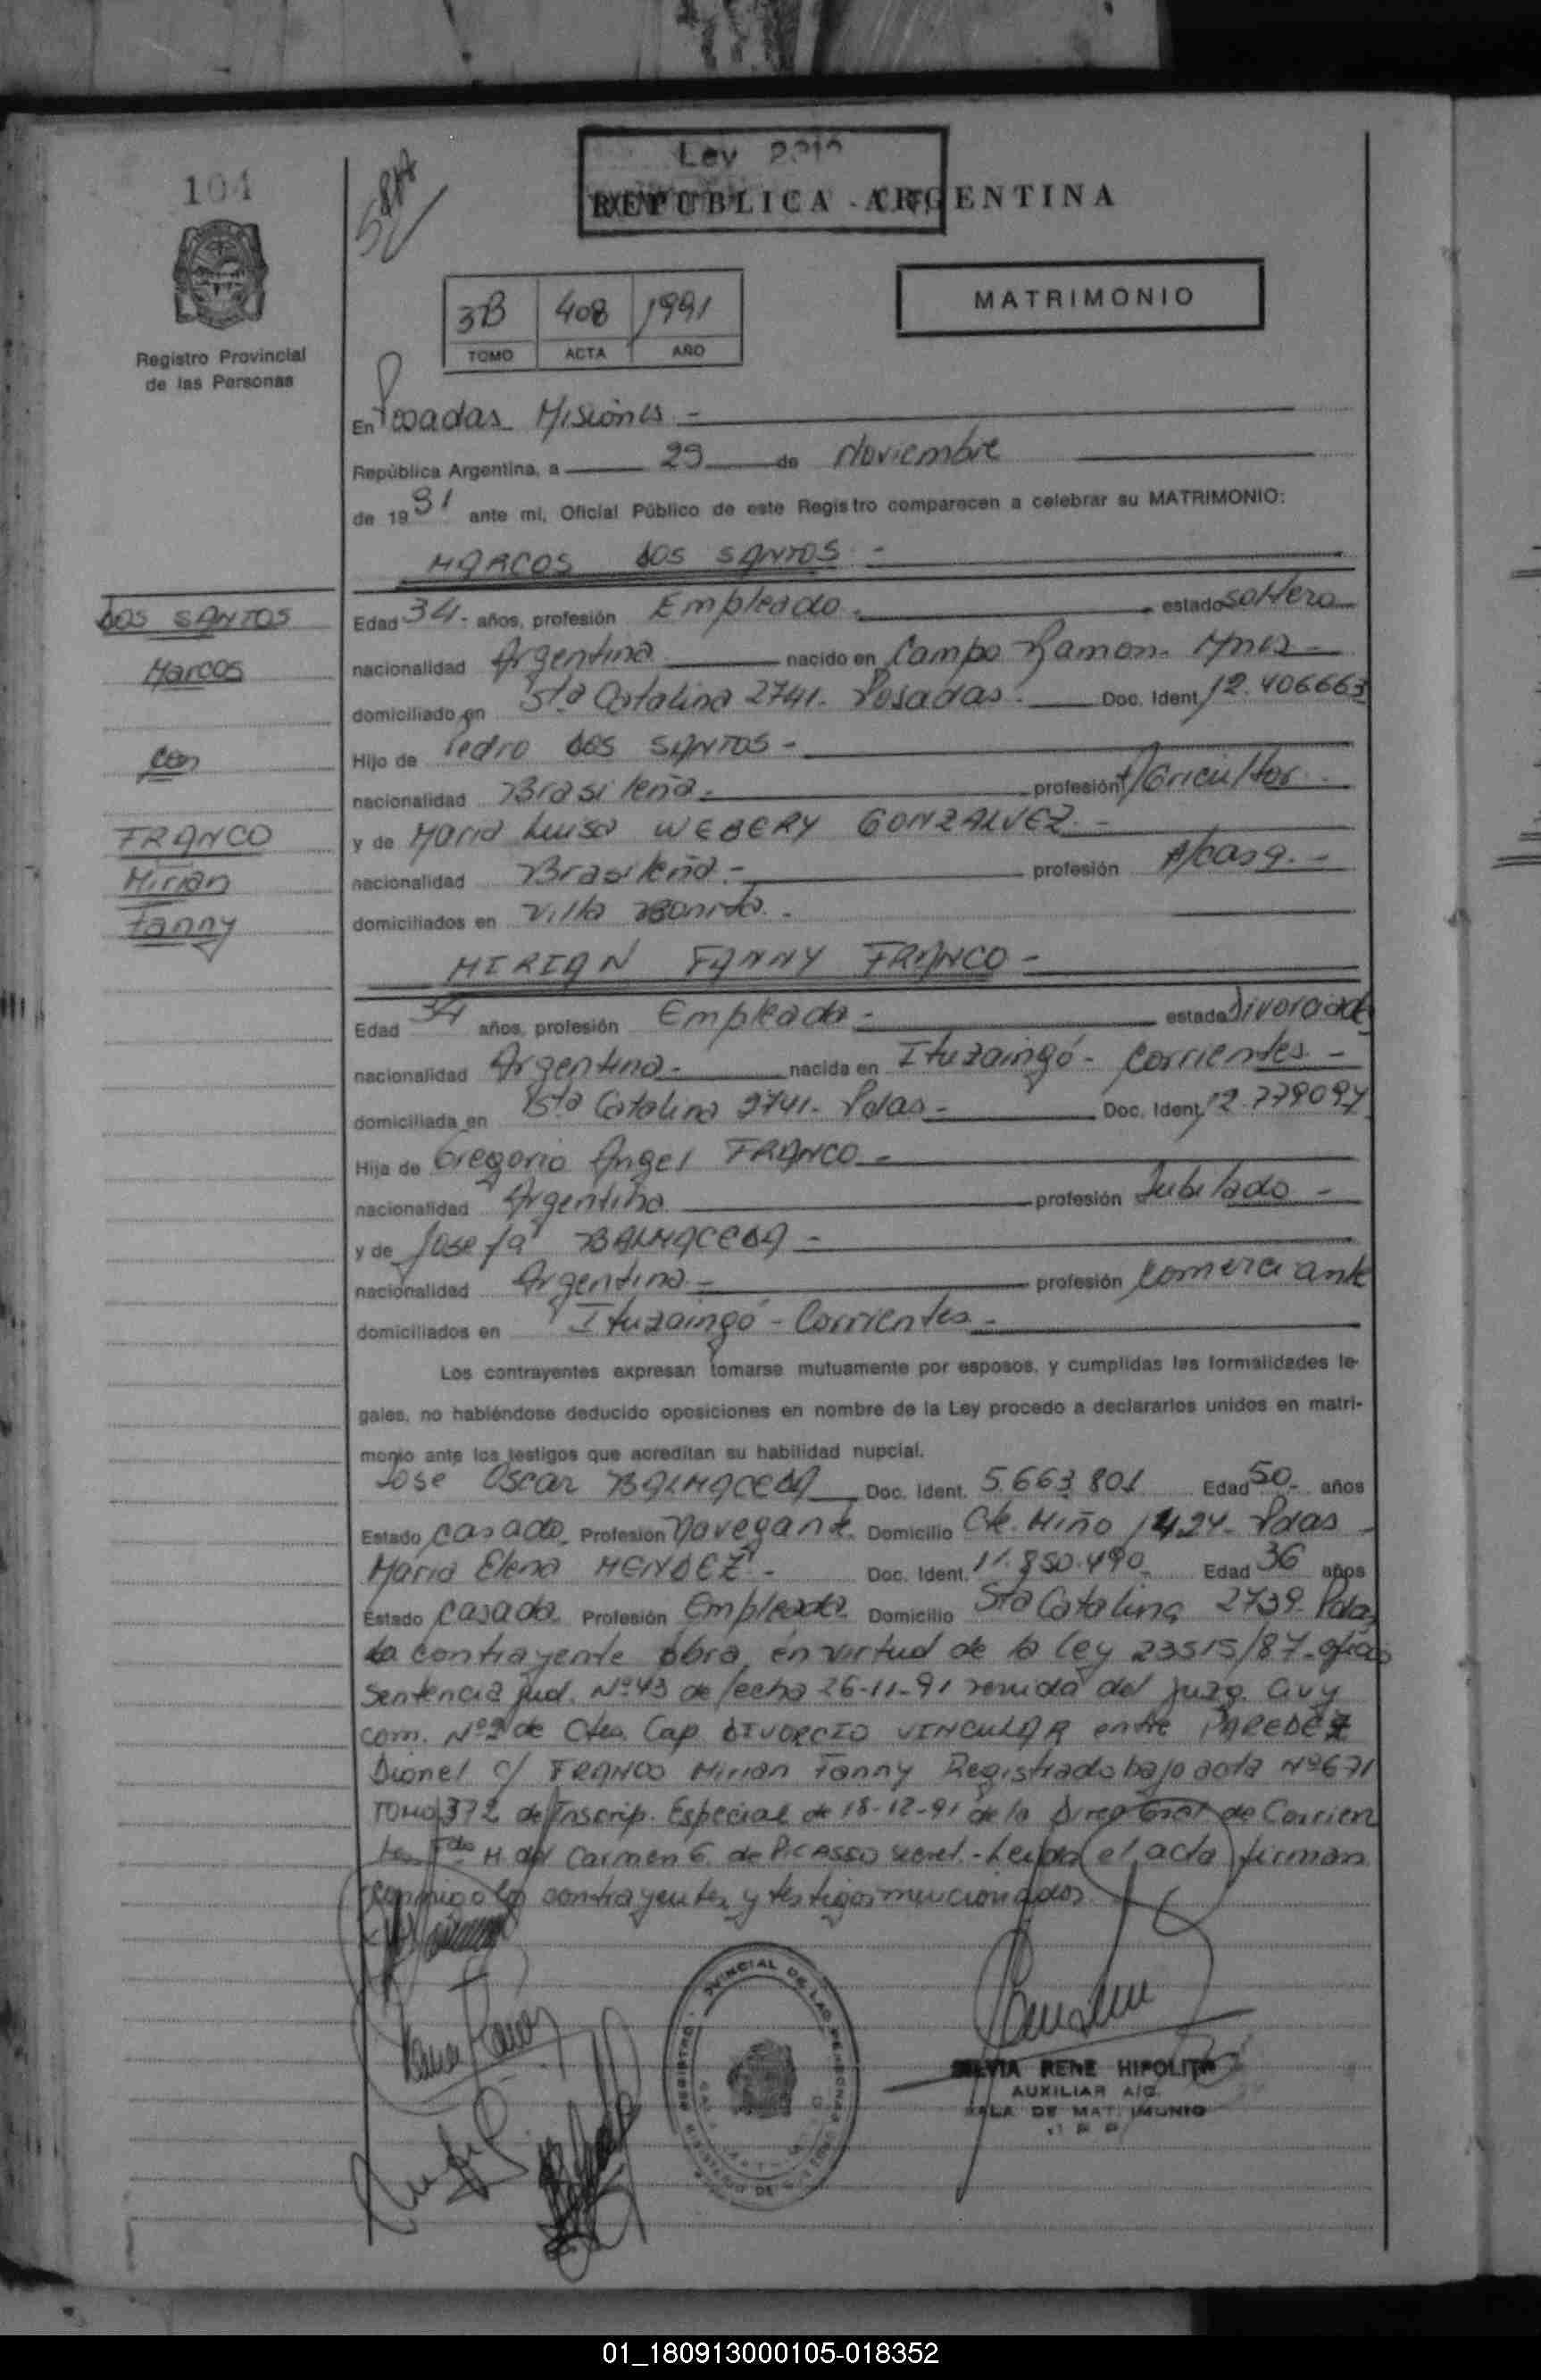 104
Ley
REPUBLICA ARGENTINA
Registro Provincial
de las Personas
MATRIMONIO
3B 408 1991
TOMO ACTA AÑO
En Posadas Misiones -
República Argentina, a 29 de Noviembre
de 1991 ante mi, Oficial Público de este Registro comparecen a celebrar su MATRIMONIO:
MARCOS DOS SANTOS -
DOS SANTOS
Marcos
con
FRANCO
Mirian
Fanny
Edad 34- años, profesión Empleado. estado soltero
nacionalidad Argentina nacido en Campo Ramon. Mnes -
domiciliado en Sta Catalina 2741. Posadas. Doc. Ident. 12.406663
Hijo de Pedro DOS SANTOS -
nacionalidad Brasileña. profesión Agricultor.
y de Maria Luisa WEBERY GONZALVEZ. -
nacionalidad Brasileña. - profesión A/casa. -
domiciliados en Villa Bonita.
MIRIAN FANNY FRANCO -
Edad 34 años, profesión Empleada - estado Divorciada
nacionalidad Argentina - nacida en Ituzaingó - Corrientes -
domiciliada en Sta Catalina 2741. Pdas - Doc. Ident. 12.779097
Hija de Gregorio Angel FRANCO -
nacionalidad Argentina profesión Jubilado -
y de Josefa BALMACEDA -
nacionalidad Argentina - profesión Comerciante
domiciliados en Ituzaingó - Corrientes -
Los contrayentes expresan tomarse mutuamente por esposos, y cumplidas las formalidades le-
gales, no habiéndose deducido oposiciones en nombre de la Ley procedo a declararlos unidos en matri-
monio ante los testigos que acreditan su habilidad nupcial.
Jose Oscar BALMACEDA Doc. Ident. 5.663.801 Edad 50- años
Estado casado. Profesión Navegante. Domicilio Cte. Miño 1424- Pdas -
Maria Elena MENDEZ - Doc. Ident. 11.850.490 Edad 36 años
Estado casada. Profesión Empleada. Domicilio Sta Catalina 2739. Pdas
La contrayente obra en virtud de la ley 23515/87.
Sentencia jud. Nº43 de fecha 26-11-91 venida del juzg. Civ y
com. Nº2 de Ctes. Cap DIVORCIO VINCULAR entre PAREDEZ
Dionel c/ FRANCO Mirian Fanny Registrado bajo acta Nº671
TOMO 372 de Inscrip. Especial de 18-12-91 de la Direc Gral de Corrien
tes. Fdo M. del Carmen G. de PICASSO secret. - Leida el acta firman
conmigo los contrayentes y testigos mencionados.
REGISTRO PROVINCIAL DE LAS PERSONAS
SILVIA RENE HIPOLITO
AUXILIAR A/C.
SALA DE MATRIMONIO
01_180913000105-018352